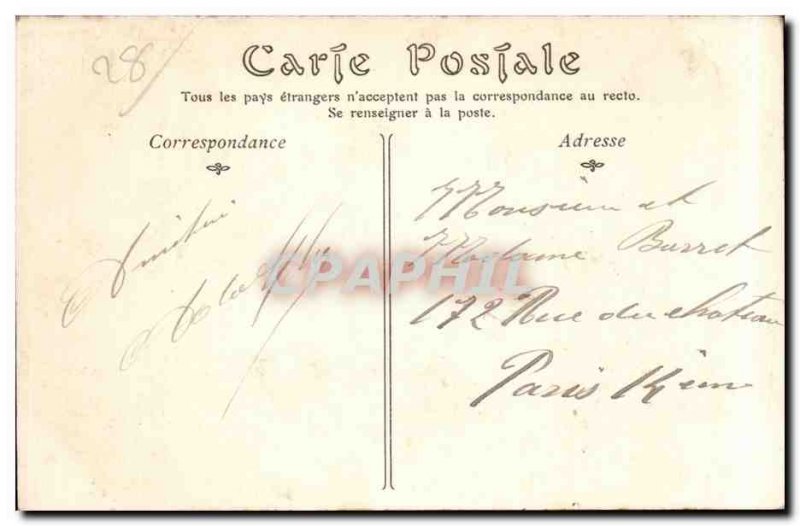 28
Carte Postale
Tous les pays étrangers n'acceptent pas la correspondance au recto.
Se renseigner à la poste.
Correspondance
Adresse
Monsieur et
Madame Burret
172 Rue du chateau
Paris 14 ème
CPAPHIL